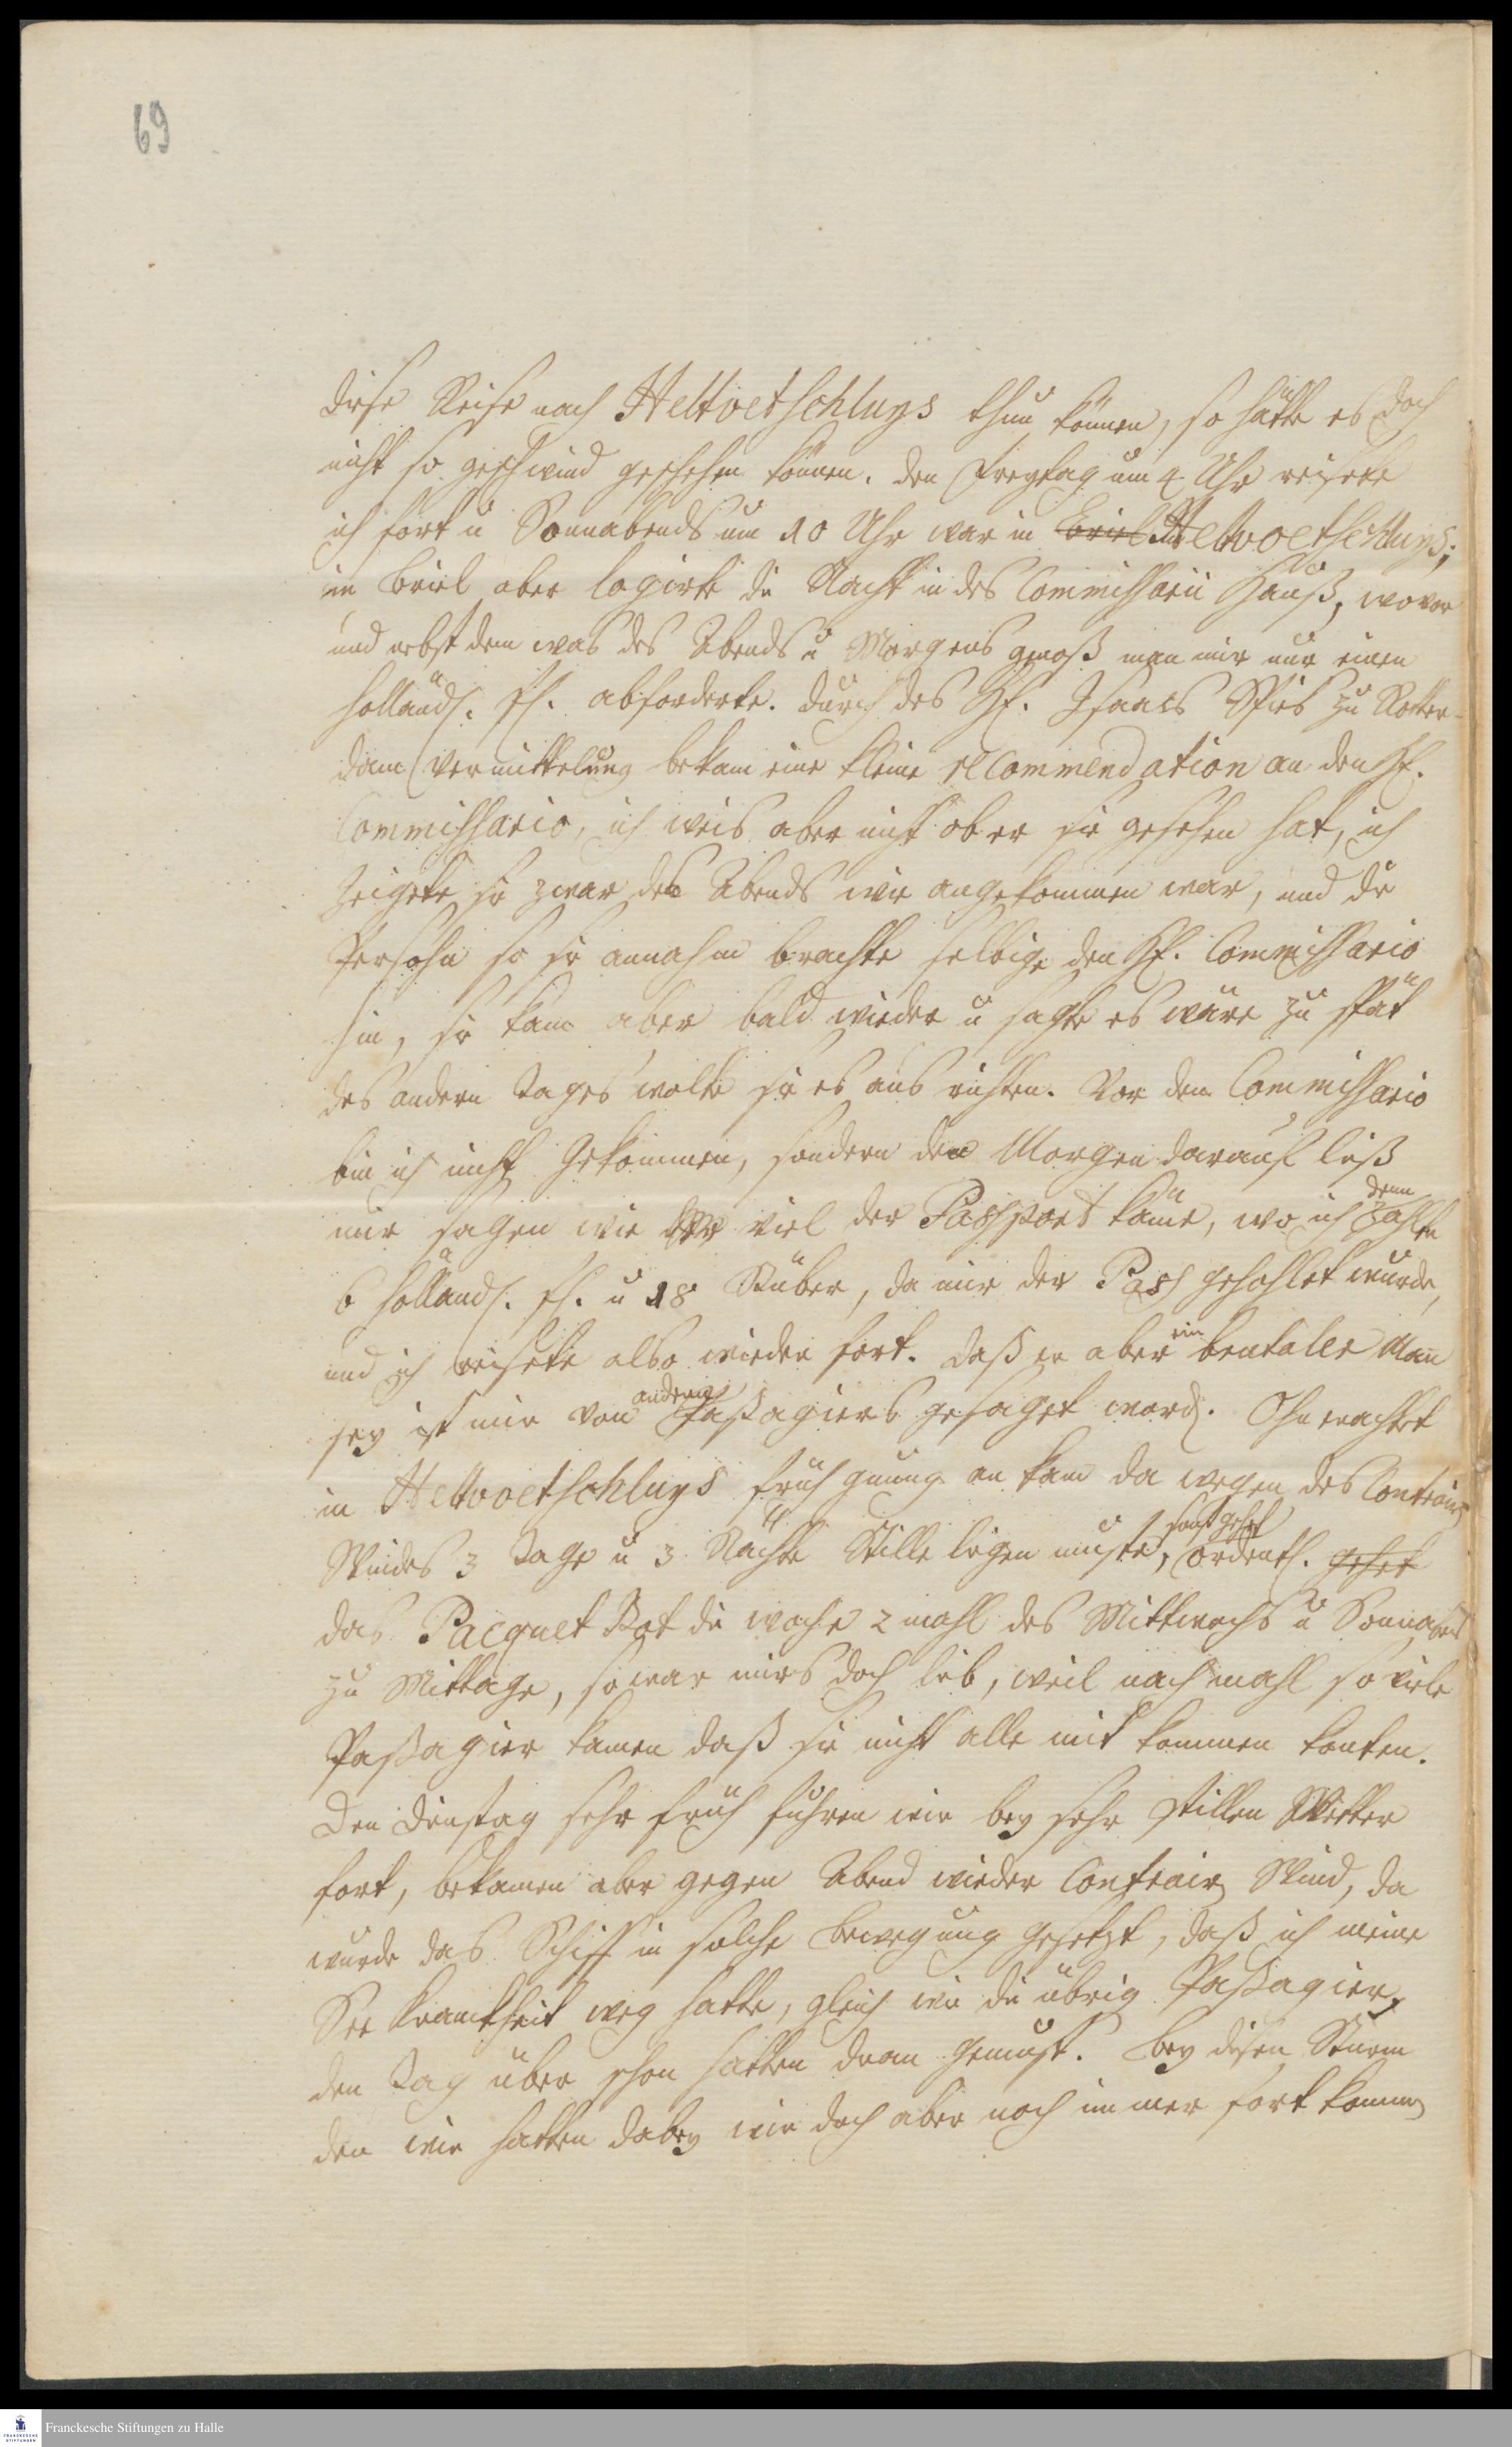 69
diese Reise nach Heltvoetschluys thun können, so hätte es doch
nicht so geschwind geschehen können. den Freytag um 4 Uhr reisete
ich fort u Sonnabends um 10 Uhr war in Briel Heltvoetschluys;
in Briel aber logirte die Nacht in des Commissarii Hauß, wovor
und nebst dem was des Abends u Morgens genoß man mir nur einen
holländ. fl. abforderte. durch des H. Isaacs Spies zu Rotter-
dam Vermittelung bekam eine kleine recommendation an den H.
Commissario, ich weis aber nicht ob er sie gesehen hat, ich
zeigete sie zwar des Abends wie angekommen war, und die
Persohn so sie annahm brachte selbige den H. Commissario
hin, sie kam aber bald wieder u sagte es wäre zu spät
des andern Tages wolte sie es aus richten. Vor dem Commissario
bin ich nicht gekommen, sondern den Morgen darauf ließ
mir sagen wie viel der Passport käme, wo ich denn zahlte
6 holländ. fl. u 18 Stüber, da mir der Pass gehohlet wurde,
und ich reisete also wieder fort. daß er aber ein brutaller Mann
sey ist mir von andern Passagiers gesaget word. Ohnerachtet
in Heltvoetschluys früh gnung an kam da wegen des Contrairen
Windes 3 Tage u 3 Nächte Stille ligen muste, ordentl. sonst gehet gehet
das Pacquet Bot die woche 2 mahl des Mittwochs u Sonnabends
zu Mittage, so war mirs doch lieb, weil nach mahl so viele
Passagier kamen daß sie nicht alle mit kommen konten.
Den Dienstag sehr früh fuhren wir bey sehr stillen Wetter
fort, bekamen aber gegen Abend wieder Contrairen Wind, da
wurde das Schiff in solche Bewegung gesetzt, daß ich meine
See kranckheit weg hatte, gleich wie die übrig Passagier,
den Tag über schon hatten dran gemust. bey disen Sturm
den wir hatten dabey wir doch aber noch immer fort kommen
Franckesche Stiftungen zu Halle